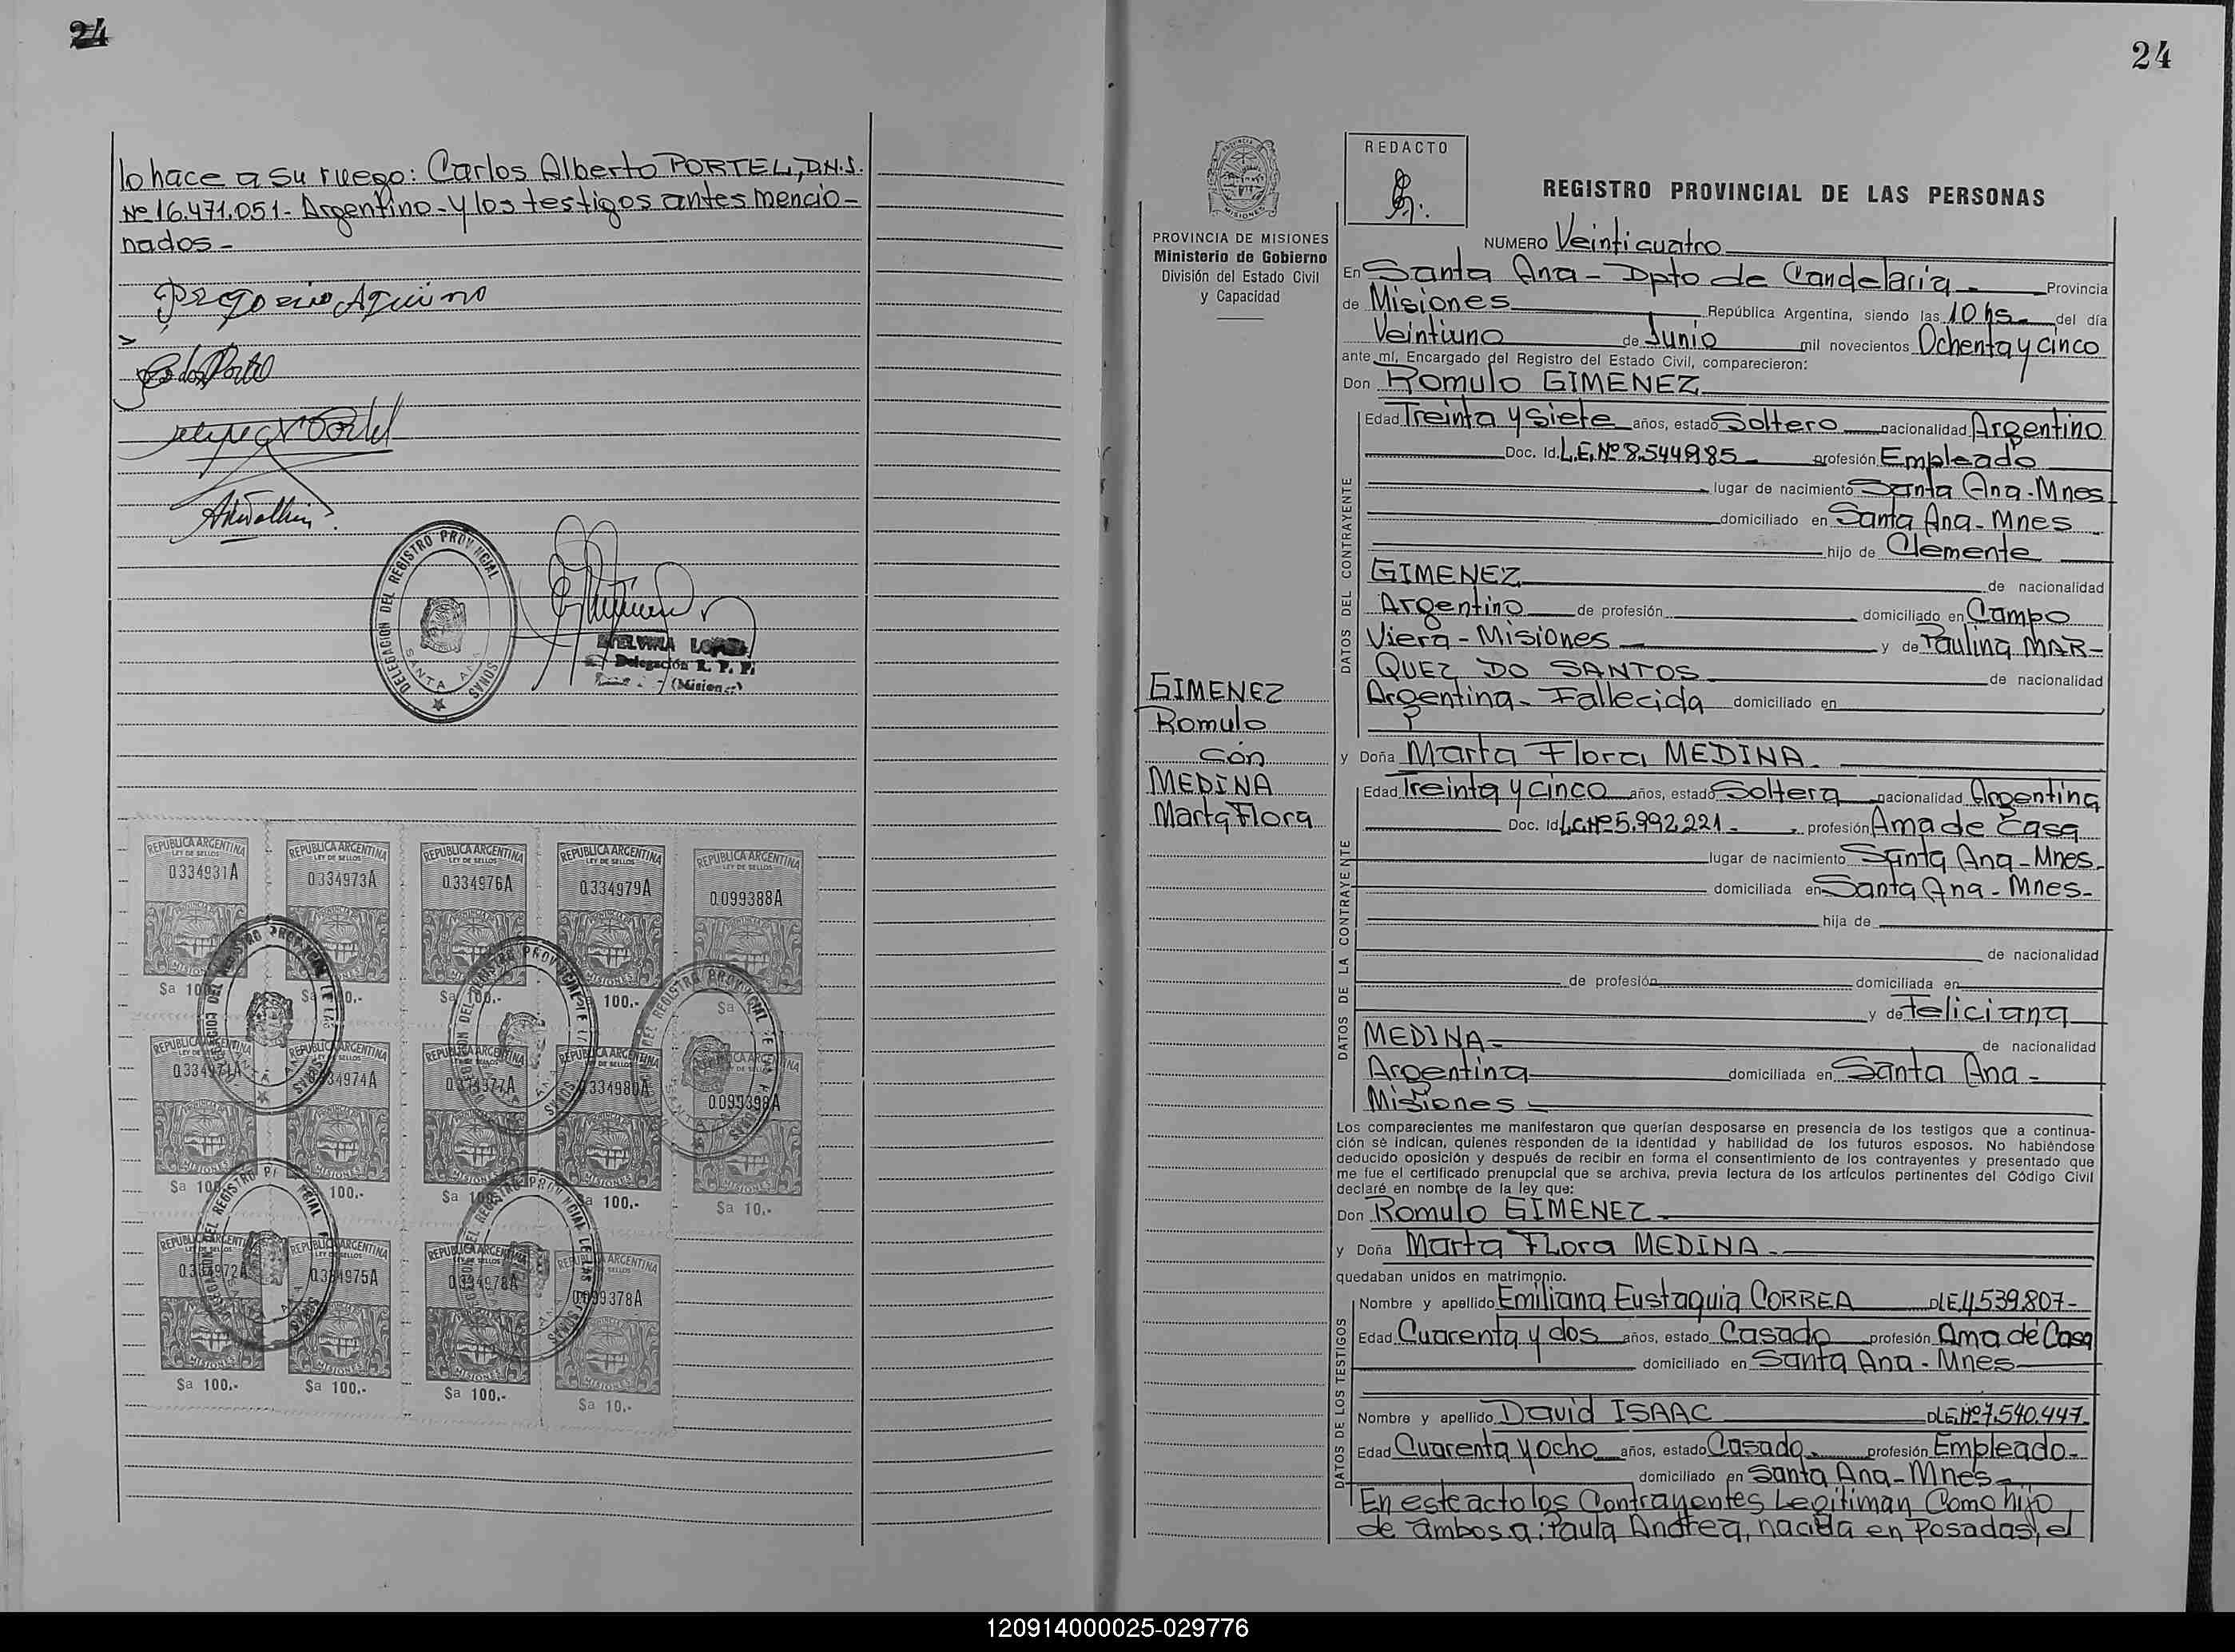 24
lo hace a su ruego: Carlos Alberto PORTEL, D.N.I.
Nº 16.471.051 - Argentino - y los testigos antes mencio-
nados -
Gregorio Aquino
DELEGACION DEL REGISTRO PROVINCIAL
SANTA ANA
PERSONAS
Delegación R. P. P.
(Misiones)
REPUBLICA ARGENTINA
LEY DE SELLOS
0334931A
MISIONES
REPUBLICA ARGENTINA
LEY DE SELLOS
0334973A
MISIONES
REPUBLICA ARGENTINA
LEY DE SELLOS
0334976A
MISIONES
$a 100.-
REPUBLICA ARGENTINA
LEY DE SELLOS
0334979A
MISIONES
100.-
REPUBLICA ARGENTINA
LEY DE SELLOS
0099388A
$a
REPUBLICA ARGENTINA
LEY DE SELLOS
MISIONES
$a 100
REPUBLICA ARGENTINA
34974A
MISIONES
100.-
REPUBLICA ARGENTINA
0334977A
MISIONES
REPUBLICA ARGENTINA
334980A
MISIONES
100.-
0099398A
MISIONES
$a 10.-
REPUBLICA ARGENTINA
MISIONES
$a 100.-
REPUBLICA ARGENTINA
0334975A
MISIONES
$a 100.-
REPUBLICA ARGENTINA
0334978A
MISIONES
$a 100.-
REPUBLICA ARGENTINA
0099378A
MISIONES
$a 10.-
24
PROVINCIA DE MISIONES
Ministerio de Gobierno
División del Estado Civil
y Capacidad
GIMENEZ
Romulo
Con
MEDINA
Marta Flora
REDACTO
REGISTRO PROVINCIAL DE LAS PERSONAS
NUMERO Veinticuatro
En Santa Ana - Dpto de Candelaria - Provincia
de Misiones República Argentina, siendo las 10 hs del día
Veintiuno de Junio mil novecientos Ochenta y cinco
ante mí, Encargado del Registro del Estado Civil, comparecieron:
Don Romulo GIMENEZ
DATOS DEL CONTRAYENTE
Edad Treinta y siete años, estado Soltero nacionalidad Argentino
Doc. Id. L.E. Nº 8.544.985 - profesión Empleado
lugar de nacimiento Santa Ana - Mnes
domiciliado en Santa Ana - Mnes
hijo de Clemente
GIMENEZ de nacionalidad
Argentino de profesión domiciliado en Campo
Viera - Misiones y de Paulina MAR-
QUEZ DO SANTOS de nacionalidad
Argentina - Fallecida domiciliado en
y Doña Marta Flora MEDINA.
DATOS DE LA CONTRAYENTE
Edad Treinta y cinco años, estado Soltera nacionalidad Argentina
Doc. Id L.C. Nº 5.992.221 - profesión Ama de Casa
lugar de nacimiento Santa Ana - Mnes -
domiciliada en Santa Ana - Mnes -
hija de
de nacionalidad
de profesión domiciliada en
y de Feliciana
MEDINA - de nacionalidad
Argentina domiciliada en Santa Ana -
Misiones -
Los comparecientes me manifestaron que querían desposarse en presencia de los testigos que a continua-
ción se indican, quienes responden de la identidad y habilidad de los futuros esposos. No habiéndose
deducido oposición y después de recibir en forma el consentimiento de los contrayentes y presentado que
me fue el certificado prenupcial que se archiva, previa lectura de los artículos pertinentes del Código Civil
declaré en nombre de la ley que:
Don Romulo GIMENEZ -
y Doña Marta FLora MEDINA -
quedaban unidos en matrimonio.
DATOS DE LOS TESTIGOS
Nombre y apellido Emiliana Eustaquia CORREA 4.539.807 -
Edad Cuarenta y dos años, estado Casado profesión Ama de Casa
domiciliado en Santa Ana - Mnes
Nombre y apellido David ISAAC Nº 7.540.447
Edad Cuarenta y ocho años, estado Casado profesión Empleado -
domiciliado en Santa Ana - Mnes -
En este acto los Contrayentes Legitiman Como hijo
de ambos a: Paula Andrea, nacida en Posadas, el
120914000025-029776